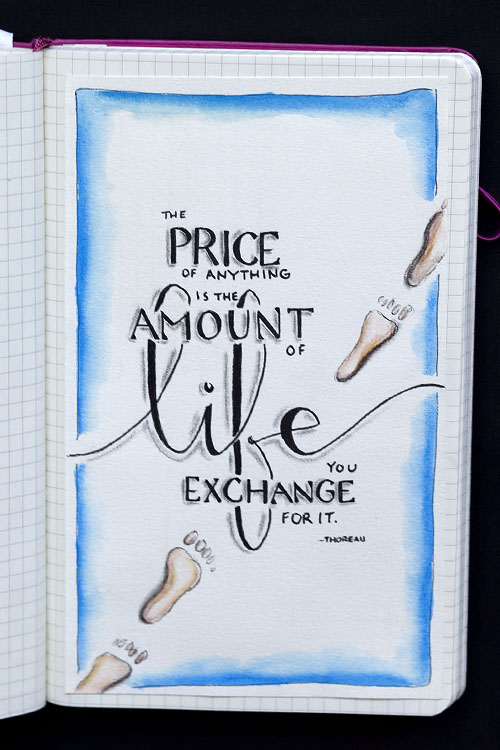 THE
PRICE
OF ANYTHING
IS THE
AMOUNT
OF
life
YOU
EXCHANGE
FOR IT.
-THOREAU